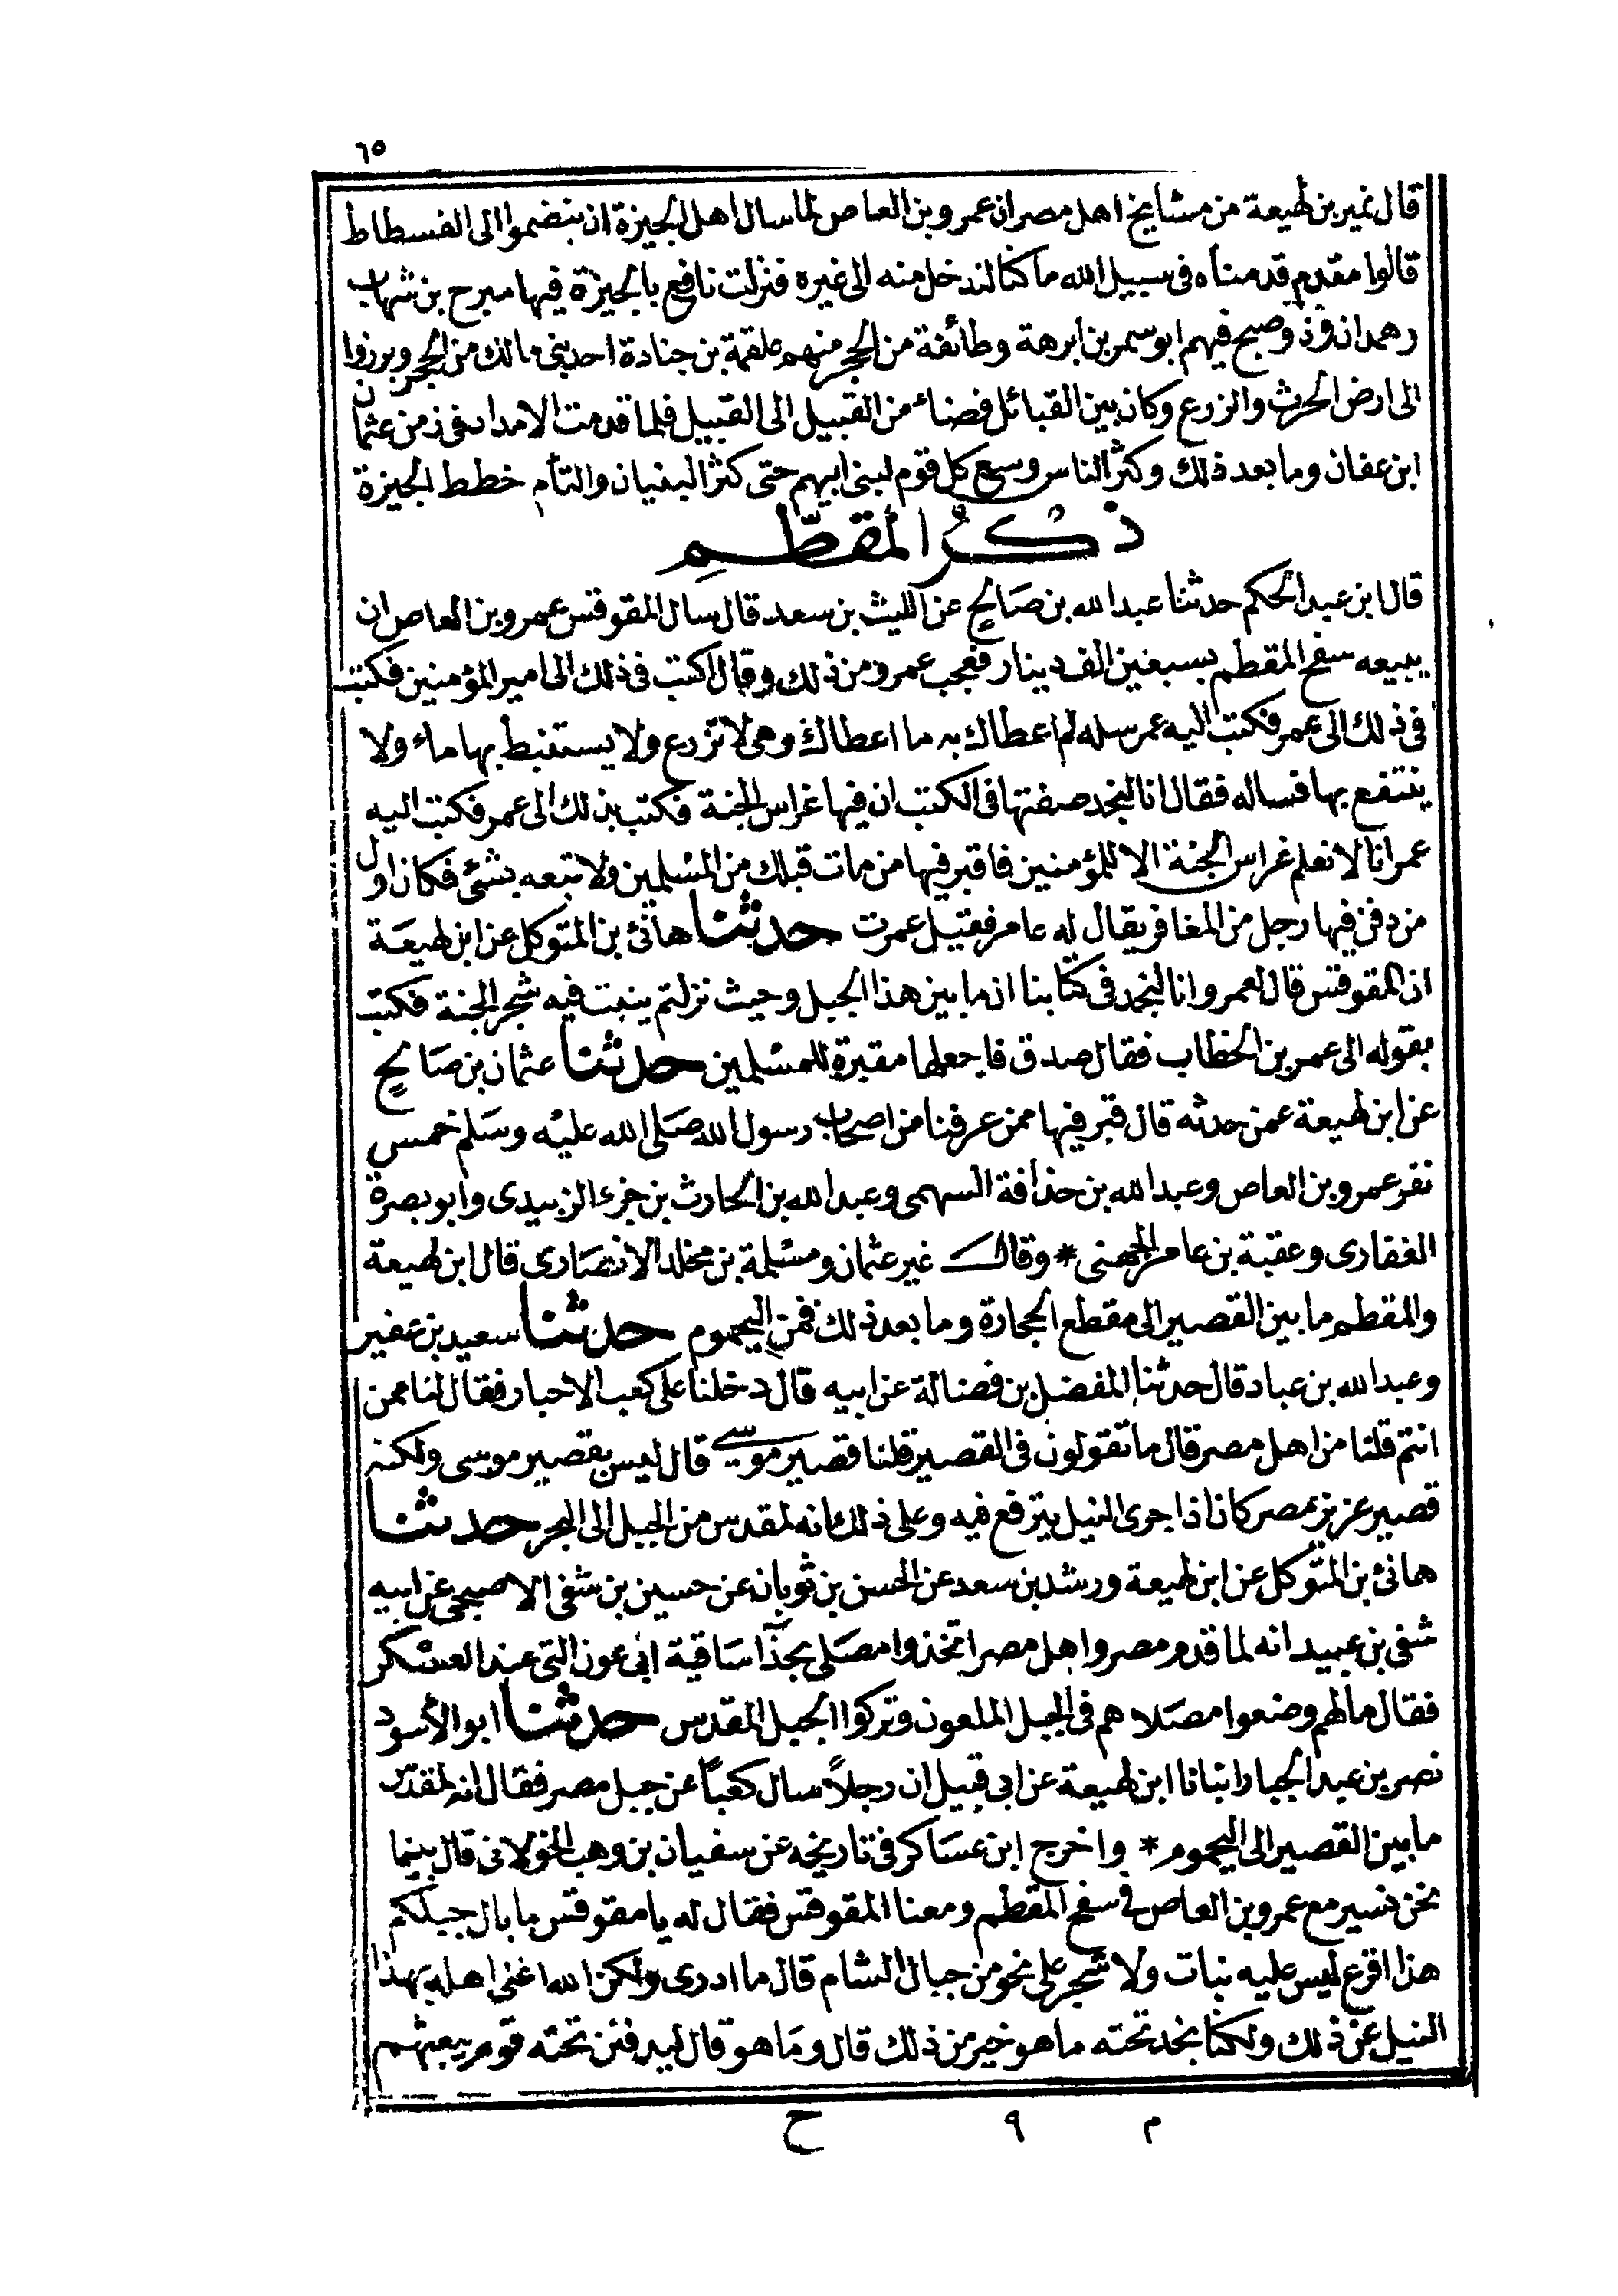 ٦٥
قال غير بن لهيعة من مشايخ اهل مصر ان عمرو بن العاص لما سال اهل الجيزة ان ينضموا الى الفسطاط
قالوا مقدم قدمناه فى سبيل الله ما كنا لندخل منه الى غيره فنزلت نافع بالجيزة فيها مبرح بن شهاب
وهمدان وذو صبح فيهم ابو سمر بن ابرهة وطائفة من الحجر منهم علقمة بن جنادة احد بنى مالك من الحجر وبرزوا
الى ارض الحرث والزرع وكان بين القبائل فضاء من القبيل الى القبيل فلما قدمت الامداد فى زمن عثمان
ابن عفان وما بعد ذلك وكثر الناس وسع كل قوم لبنى ابيهم حتى كثر البنيان والتأم خطط الجيزة
ذكرُ المقطّمِ
قال ابن عبد الحكم حدثنا عبد الله بن صَالحٍ عن الليث بن سعد قال سال المقوقس عمرو بن العاص ان
يبيعه سفح المقطم بسبعين الف دينار فعجب عمرو من ذلك وقال اكتب فى ذلك الى امير المؤمنين فكتب
فى ذلك الى عمر فكتب اليه عمر سله لم اعطاك به ما اعطاك وهى لا تزرع ولا يستنبط بها ماء ولا
ينتفع بها فساله فقال انا لنجد صفتها فى الكتب ان فيها غراس الجنة فكتب بذلك الى عمر فكتب اليه
عمر انا لا نعلم غراس الجنة الا للمؤمنين فاقبر فيها من مات قبلك من المسلمين ولا تبعه بشئ فكان اول
من دفن فيها رجل من المغافر يقال له عامر فقيل عمرت حدثنا هانئ بن المتوكل عن ابن لهيعَة
ان المقوقس قال لعمرو انا لنجد فى كتابنا ان ما بين هذا الجبل وحيث نزلتم ينبت فيه شجر الجنة فكتب
بقوله الى عمر بن الخطاب فقال صدق فاجعلها مقبرة للمسلمين حدثنا عثمان بن صَالحٍ
عن ابن لهيعة عمن حدثه قال قبر فيها ممن عرفنا من اصحاب رسول الله صَلى الله عليْه وسَلم خمس
نفر عمرو بن العاص وعبد الله بن حذافة السهمى وعبد الله بن الحارث بن جزء الزبيدى وابو بصرة
الغفارى وعقبة بن عامر الجهنى * وقال غير عثمان ومسْلمة بن مخلد الانصَارى قال ابن لهيعة
والمقطم ما بين القصير الى مقطع الحجارة وما بعد ذلك فمن اليحموم حدثنا سعيد بن عفير
وعبد الله بن عباد قال حدثنا المفضل بن فضالة عن ابيه قال دخلنا على كعب الاحبار فقال لنا ممن
انتم قلنا من اهل مصر قال ما تقولون فى القصير قلنا قصير موسى قال ليس بقصير موسى ولكنه
قصير عزيز مصر كان اذا جرى النيل يترفع فيه وعلى ذلك انه لمقدس من الجبل الى البحر حدثنا
هانئ بن المتوكل عن ابن لهيعة ورشد بن سعد عن الحسن بن ثوبان عن حسين بن شفى الاصبحى عن ابيه
شفى بن عبيد انه لما قدم مصر واهل مصر اتخذوا مصَلى بحذآ سَاقية ابى عون التى عند العسْكر
فقال ما لهم وضعوا مصَلاهم فى الجبل الملعون وتركوا الجبل المقدس حدثنا ابو الأسود
نصر بن عبد الجبار انبانا ابن لهيعة عن ابى قبيل ان رجلاً سال كعباً عن جبل مصر فقال انه لمقدس
ما بين القصير الى اليحموم * واخرج ابن عسَاكر فى تاريخه عن سفيان بن وهب الخولانى قال بينما
نحن نسير مع عمرو بن العاص فى سفح المقطم ومعنا المقوقس فقال له يا مقوقس ما بال جبلكم
هذا اقرع ليس عليه نبات ولا شجر على نحو من جبال الشام قال ما ادرى ولكن الله اغنى اهله بهذا
النيل عن ذلك ولكنا نجد تحته ما هو خير من ذلك قال ومَا هو قال ليدفنن تحته قوم يبعثهم
م ٩ ح